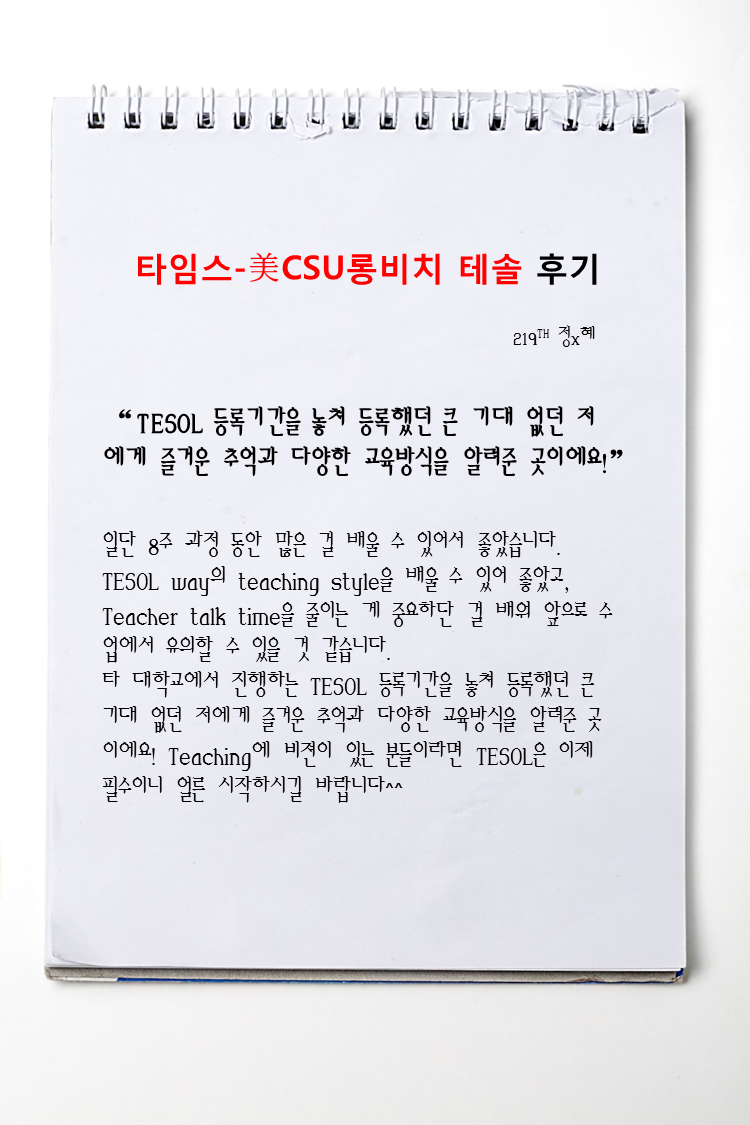 타임스-美CSU롱비치 테솔 후기
219TH 정x혜
“TESOL 등록기간을 놓쳐 등록했던 큰 기대 없던 저
에게 즐거운 추억과 다양한 교육방식을 알려준 곳이에요!”
일단 8주 과정 동안 많은 걸 배울 수 있어서 좋았습니다.
TESOL way의 teaching style을 배울 수 있어 좋았고,
Teacher talk time을 줄이는 게 중요하단 걸 배워 앞으로 수
업에서 유의할 수 있을 것 같습니다.
타 대학교에서 진행하는 TESOL 등록기간을 놓쳐 등록했던 큰
기대 없던 저에게 즐거운 추억과 다양한 교육방식을 알려준 곳
이에요! Teaching에 비젼이 있는 분들이라면 TESOL은 이제
필수이니 얼른 시작하시길 바랍니다^^